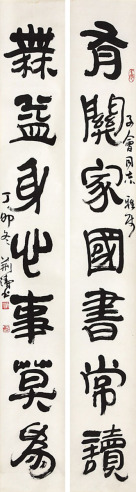 有關家國書常讀
子會同志雅屬
無益身心事莫爲
丁卯冬